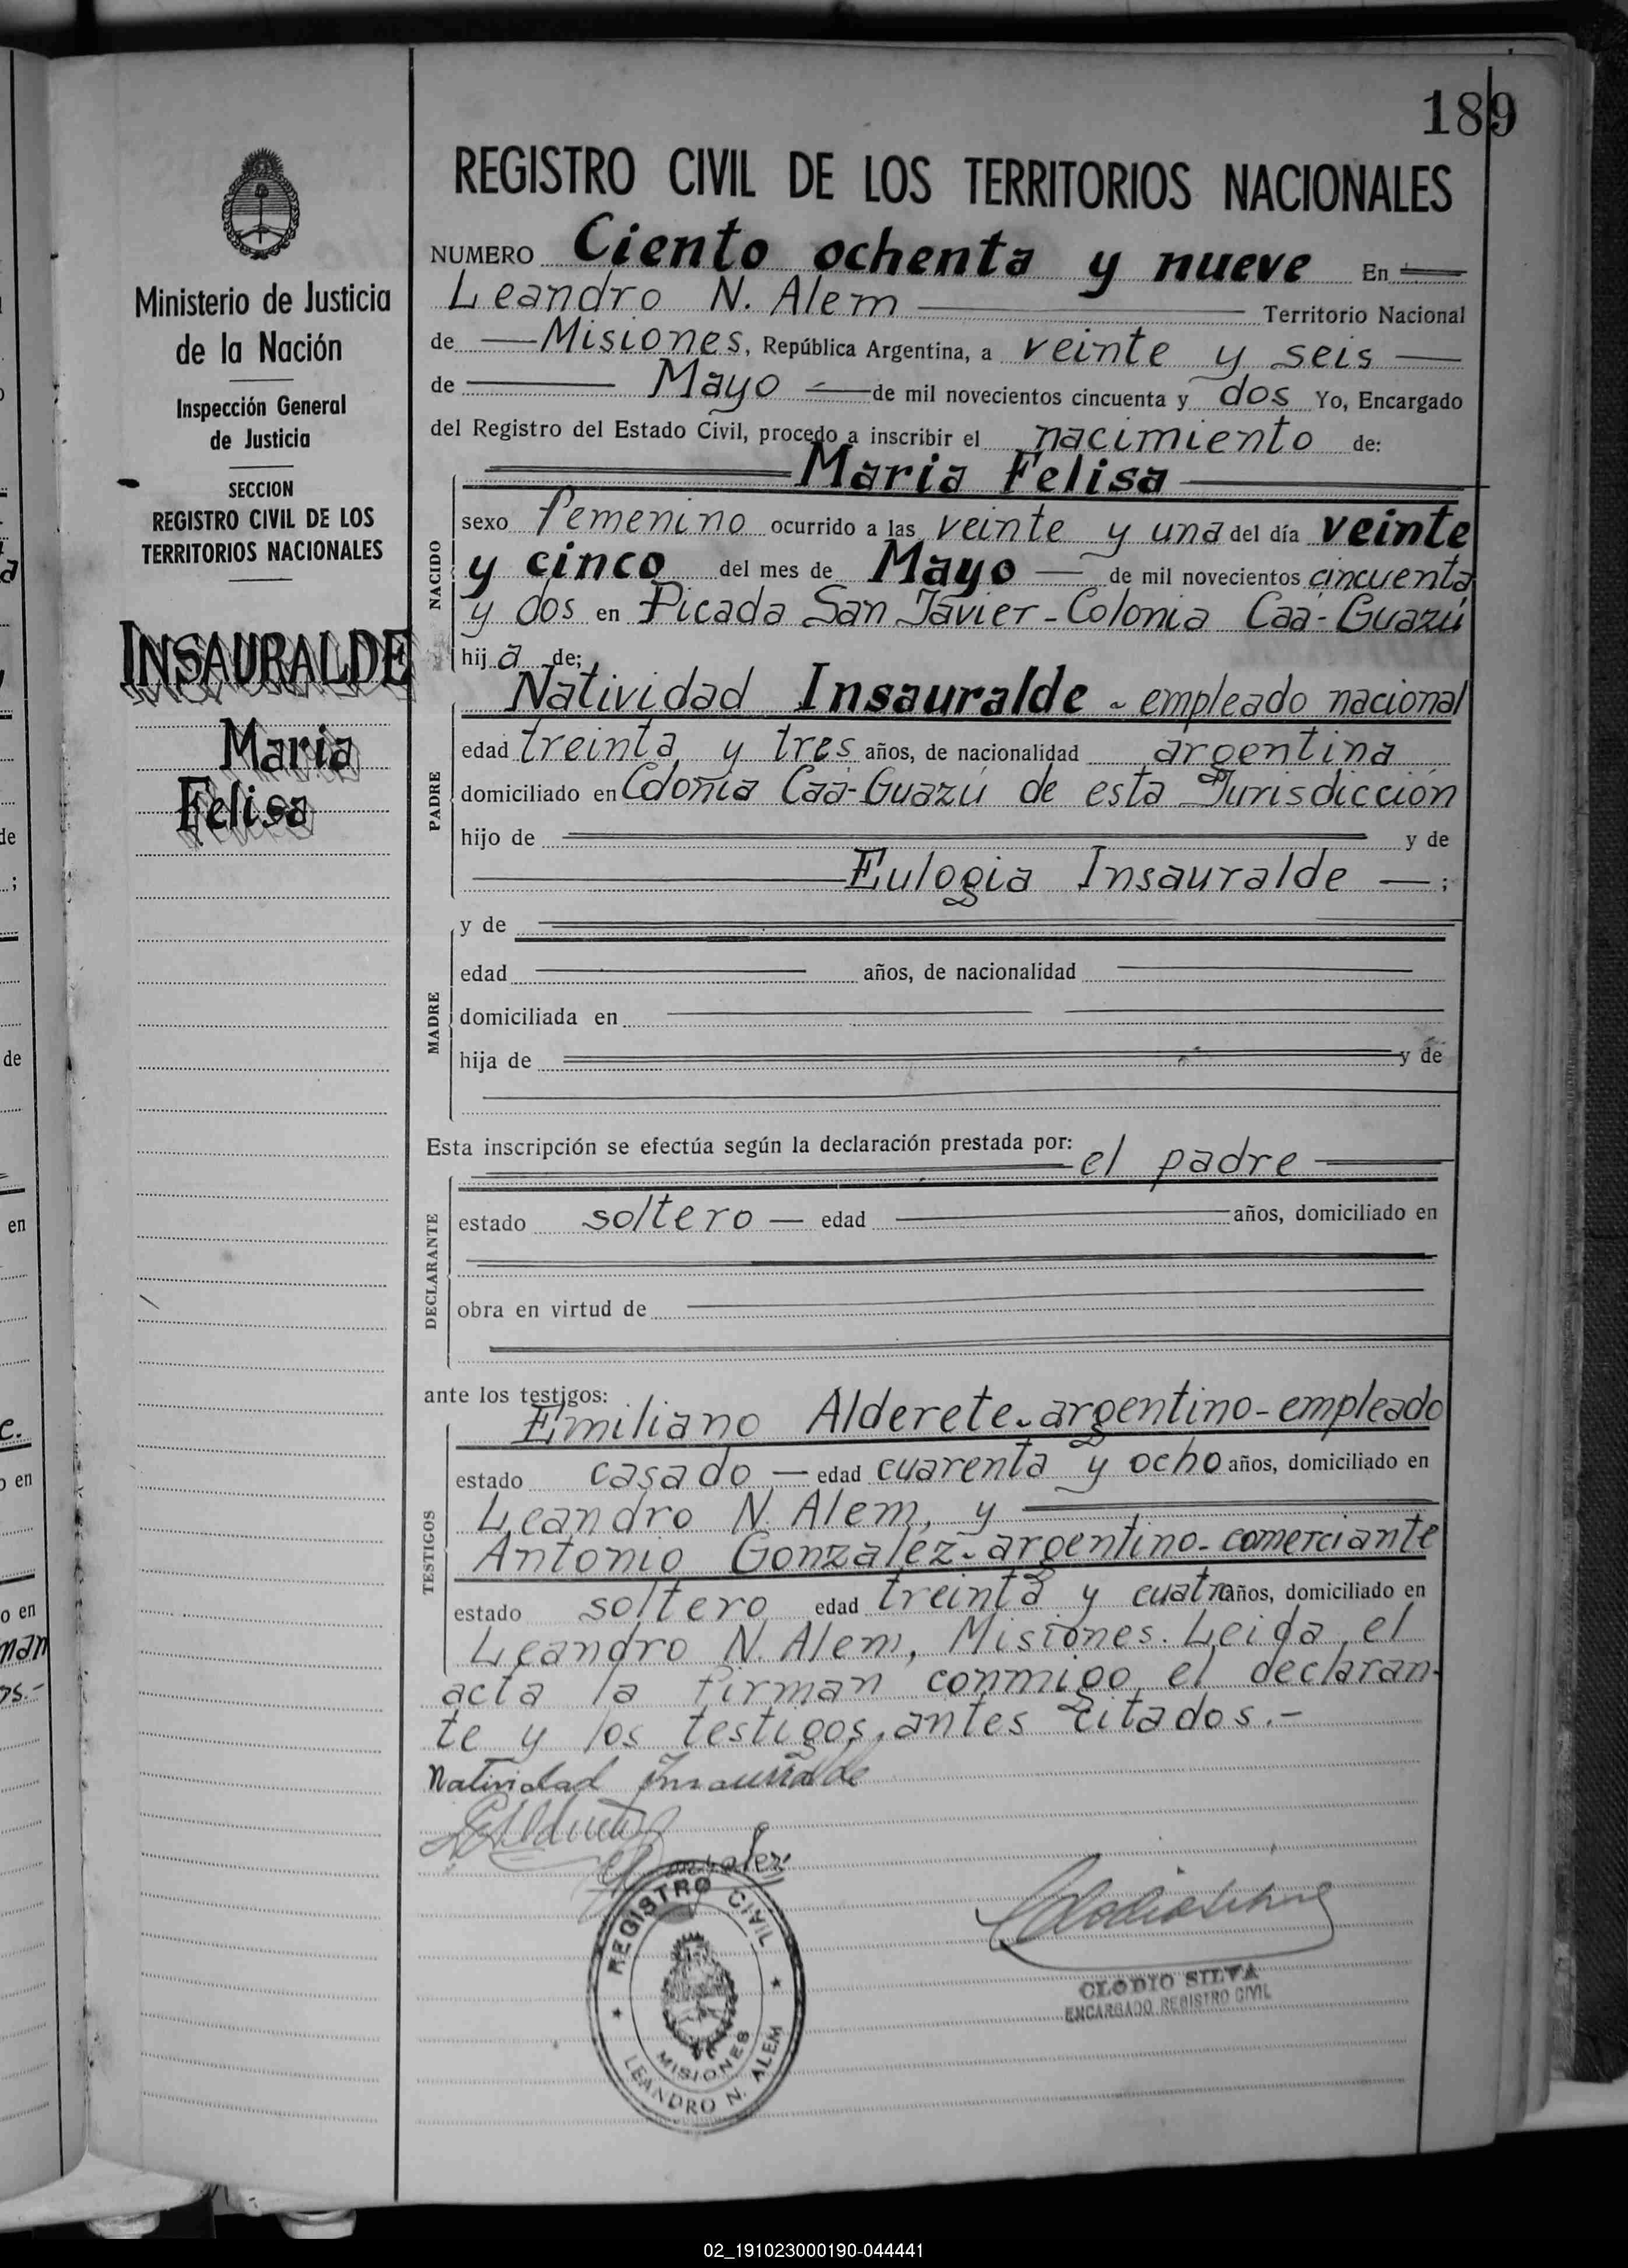 189
REGISTRO CIVIL DE LOS TERRITORIOS NACIONALES
Ministerio de Justicia
de la Nación
Inspección General
de Justicia
SECCION
REGISTRO CIVIL DE LOS
TERRITORIOS NACIONALES
INSAURALDE
Maria
Felisa
NUMERO Ciento ochenta y nueve En
Leandro N. Alem Territorio Nacional
de Misiones, República Argentina, a veinte y seis
de Mayo de mil novecientos cincuenta y dos Yo, Encargado
del Registro del Estado Civil, procedo a inscribir el nacimiento de:
Maria Felisa
NACIDO
sexo femenino ocurrido a las veinte y una del día veinte
y cinco del mes de Mayo de mil novecientos cincuenta
y dos en Picada San Javier - Colonia Caá-Guazú
hija de;
Natividad Insauralde - empleado nacional
PADRE
edad treinta y tres años, de nacionalidad argentina
domiciliado en Colonia Caá-Guazú de esta Jurisdicción
hijo de y de
Eulogia Insauralde ;
y de
MADRE
edad años, de nacionalidad
domiciliada en
hija de y de
Esta inscripción se efectúa según la declaración prestada por:
el padre
DECLARANTE
estado soltero edad años, domiciliado en
obra en virtud de
ante los testigos:
Emiliano Alderete - argentino - empleado
TESTIGOS
estado casado - edad cuarenta y ocho años, domiciliado en
Leandro N. Alem, y
Antonio Gonzalez - argentino - comerciante
estado soltero edad treinta y cuatro años, domiciliado en
Leandro N. Alem, Misiones. Leida el
acta la firman conmigo el declaran-
te y los testigos antes citados.-
Natividad Insauralde
REGISTRO CIVIL
MISIONES
LEANDRO N. ALEM
CLODIO SILVA
ENCARGADO REGISTRO CIVIL
02_191023000190-044441